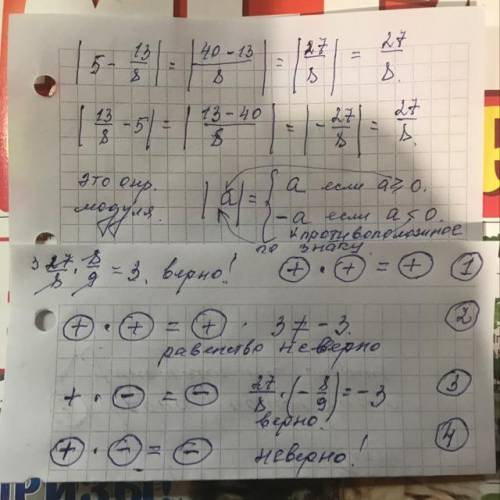 | 5 - 13/8 | = | (40-13)/8 | = | 27/8 | = 27/8.
| 13/8 - 5 | = | (13-40)/8 | = | -27/8 | = 27/8.
это опр. модуля.
|a| = { a если a ≥ 0.
-a если a < 0.
противоположное
по знаку.
3 27/8 · 8/9 = 3. верно! (+) · (+) = (+) (1)
(+) · (+) = (+) · 3 ≠ -3. (2)
равенство неверно
+ · (-) = (-) 27/8 · (-8/9) = -3 (3)
верно.
(+) · (-) = (-) неверно! (4)
ПРИЗЫ!